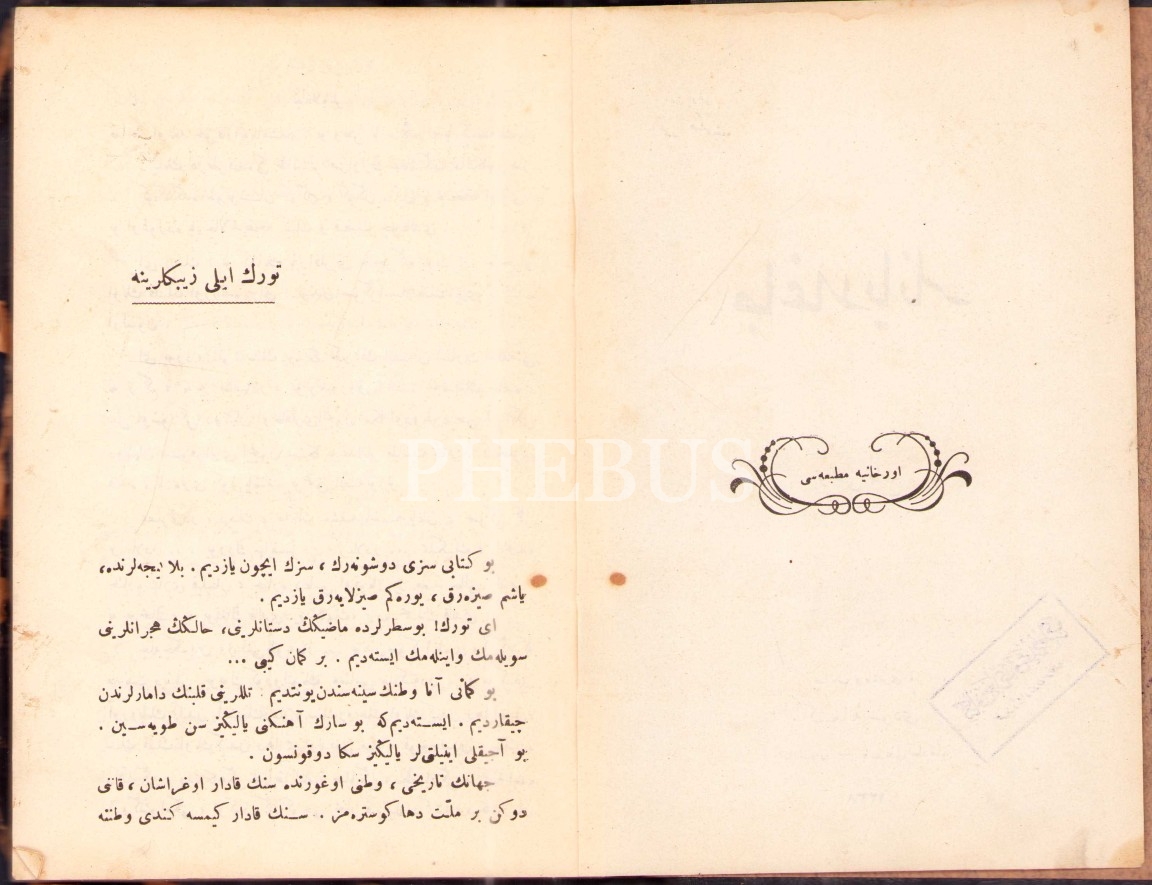 اورخانیه مطبعه‌سی
PHEBUS
تورك ایلی زیبكلرینه
بو كتابی سزی دوشونه‌رك ، سزك ایچون یازدیم . بلا گیجه‌لرنده،
یاشم صیزه‌رق ، یوره‌كم صیزلایه‌رق یازدیم .
ای تورك! بوسطرلرده ماضیكڭ دستانلرینی، حالكڭ هجرانلرینی
سویله‌مك واینله‌مك ایسته‌دیم . بر كمان كبی ...
بو كمانی آنا وطنك سینه‌سندن یونتدیم . تللرینی قلبنك دامارلرندن
چیقاردیم . ایسته‌دیم كه بو سازك آهنكنی یالیڭز سن طویه‌سین .
بو آجیقلی اینیلتی‌لر یالیڭز سكا دوقونسون .
جهانك تاریخی ، وطنی اوغورنده سنك قادار اوغراشان ، قاننی
دوكن بر ملّت دها كوستره‌مز . سنك قادار كیمسه كندی وطننه